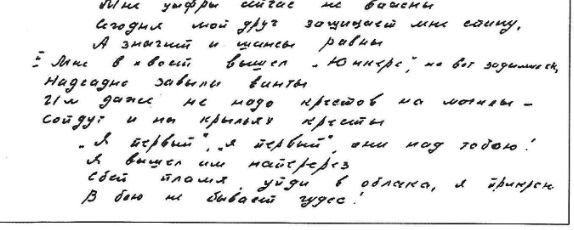 Мне цифры сейчас не важны
Сегодня мой друг защищает мне спину,
А значит и шансы равны
Мне в хвост вышел „Юнкерс", но вот задымился,
Надсадно завыли винты
Им даже не надо крестов на могилы –
Сойдут и на крыльях кресты
„Я первый", „я первый", они над тобою!
Я вышел им наперерез
Сбей пламя, уйди в облака, я прикрою
В бою не бывает чудес!